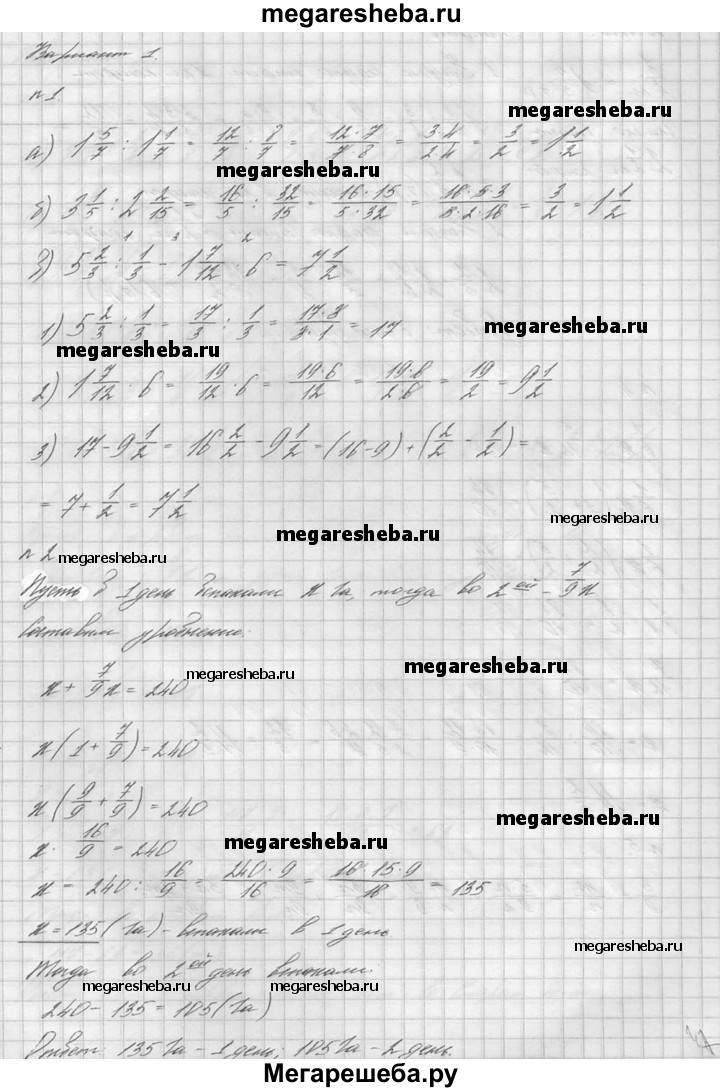 megaresheba.ru
Вариант 1.
n 1.
megaresheba.ru
а) 1 5/7 : 1 1/7 = 12/7 : 8/7 = 12·7/7·8 = 3·4/2·4 = 3/2 = 1 1/2
megaresheba.ru
б) 3 1/5 : 2 2/15 = 16/5 : 32/15 = 16·15/5·32 = 16·5·3/5·2·16 = 3/2 = 1 1/2
1 3 2
в) 5 2/3 : 1/3 - 1 7/12 · 6 = 7 1/2
1) 5 2/3 : 1/3 = 17/3 : 1/3 = 17·3/3·1 = 17
megaresheba.ru
megaresheba.ru
2) 1 7/12 · 6 = 19/12 · 6 = 19·6/12 = 19·6/2·6 = 19/2 = 9 1/2
3) 17 - 9 1/2 = 16 2/2 - 9 1/2 = (16-9) + (2/2 - 1/2) =
= 7 + 1/2 = 7 1/2
megaresheba.ru
megaresheba.ru
n 2
megaresheba.ru
Пусть в 1 день вспахали x га, тогда во 2 ой - 7/9 x
Составим уравнение:
megaresheba.ru
megaresheba.ru
x + 7/9 x = 240
x (1 + 7/9) = 240
x (9/9 + 7/9) = 240
megaresheba.ru
x · 16/9 = 240
megaresheba.ru
x = 240 : 16/9 = 240·9/16 = 16·15·9/16 = 135
x = 135 (га) - вспахали в 1 день
megaresheba.ru
Тогда во 2 ой день вспахали:
megaresheba.ru
megaresheba.ru
240 - 135 = 105 (га)
Ответ: 135 га - 1 день; 105 га - 2 день.
Мегарешеба.ру